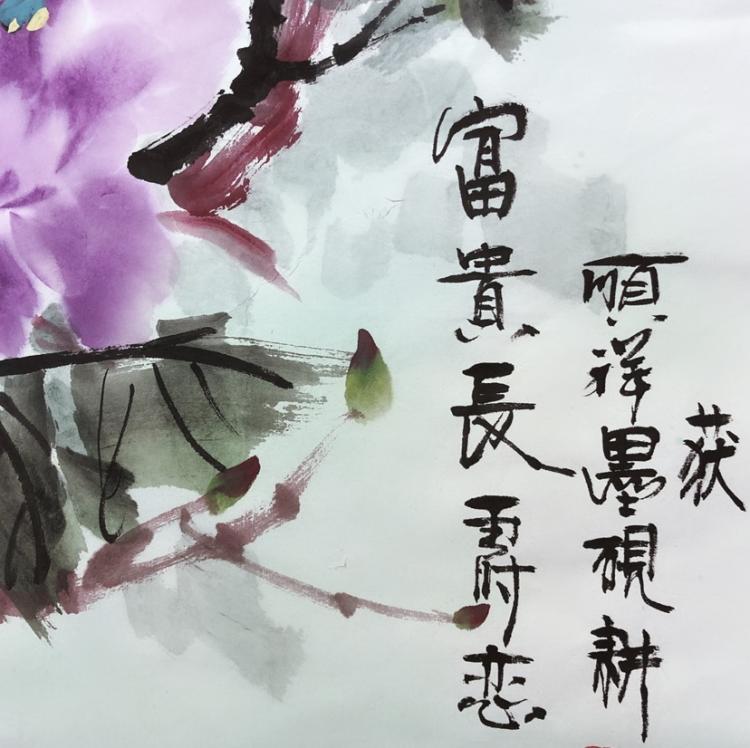 富貴長壽恋
順祥墨硯耕
获